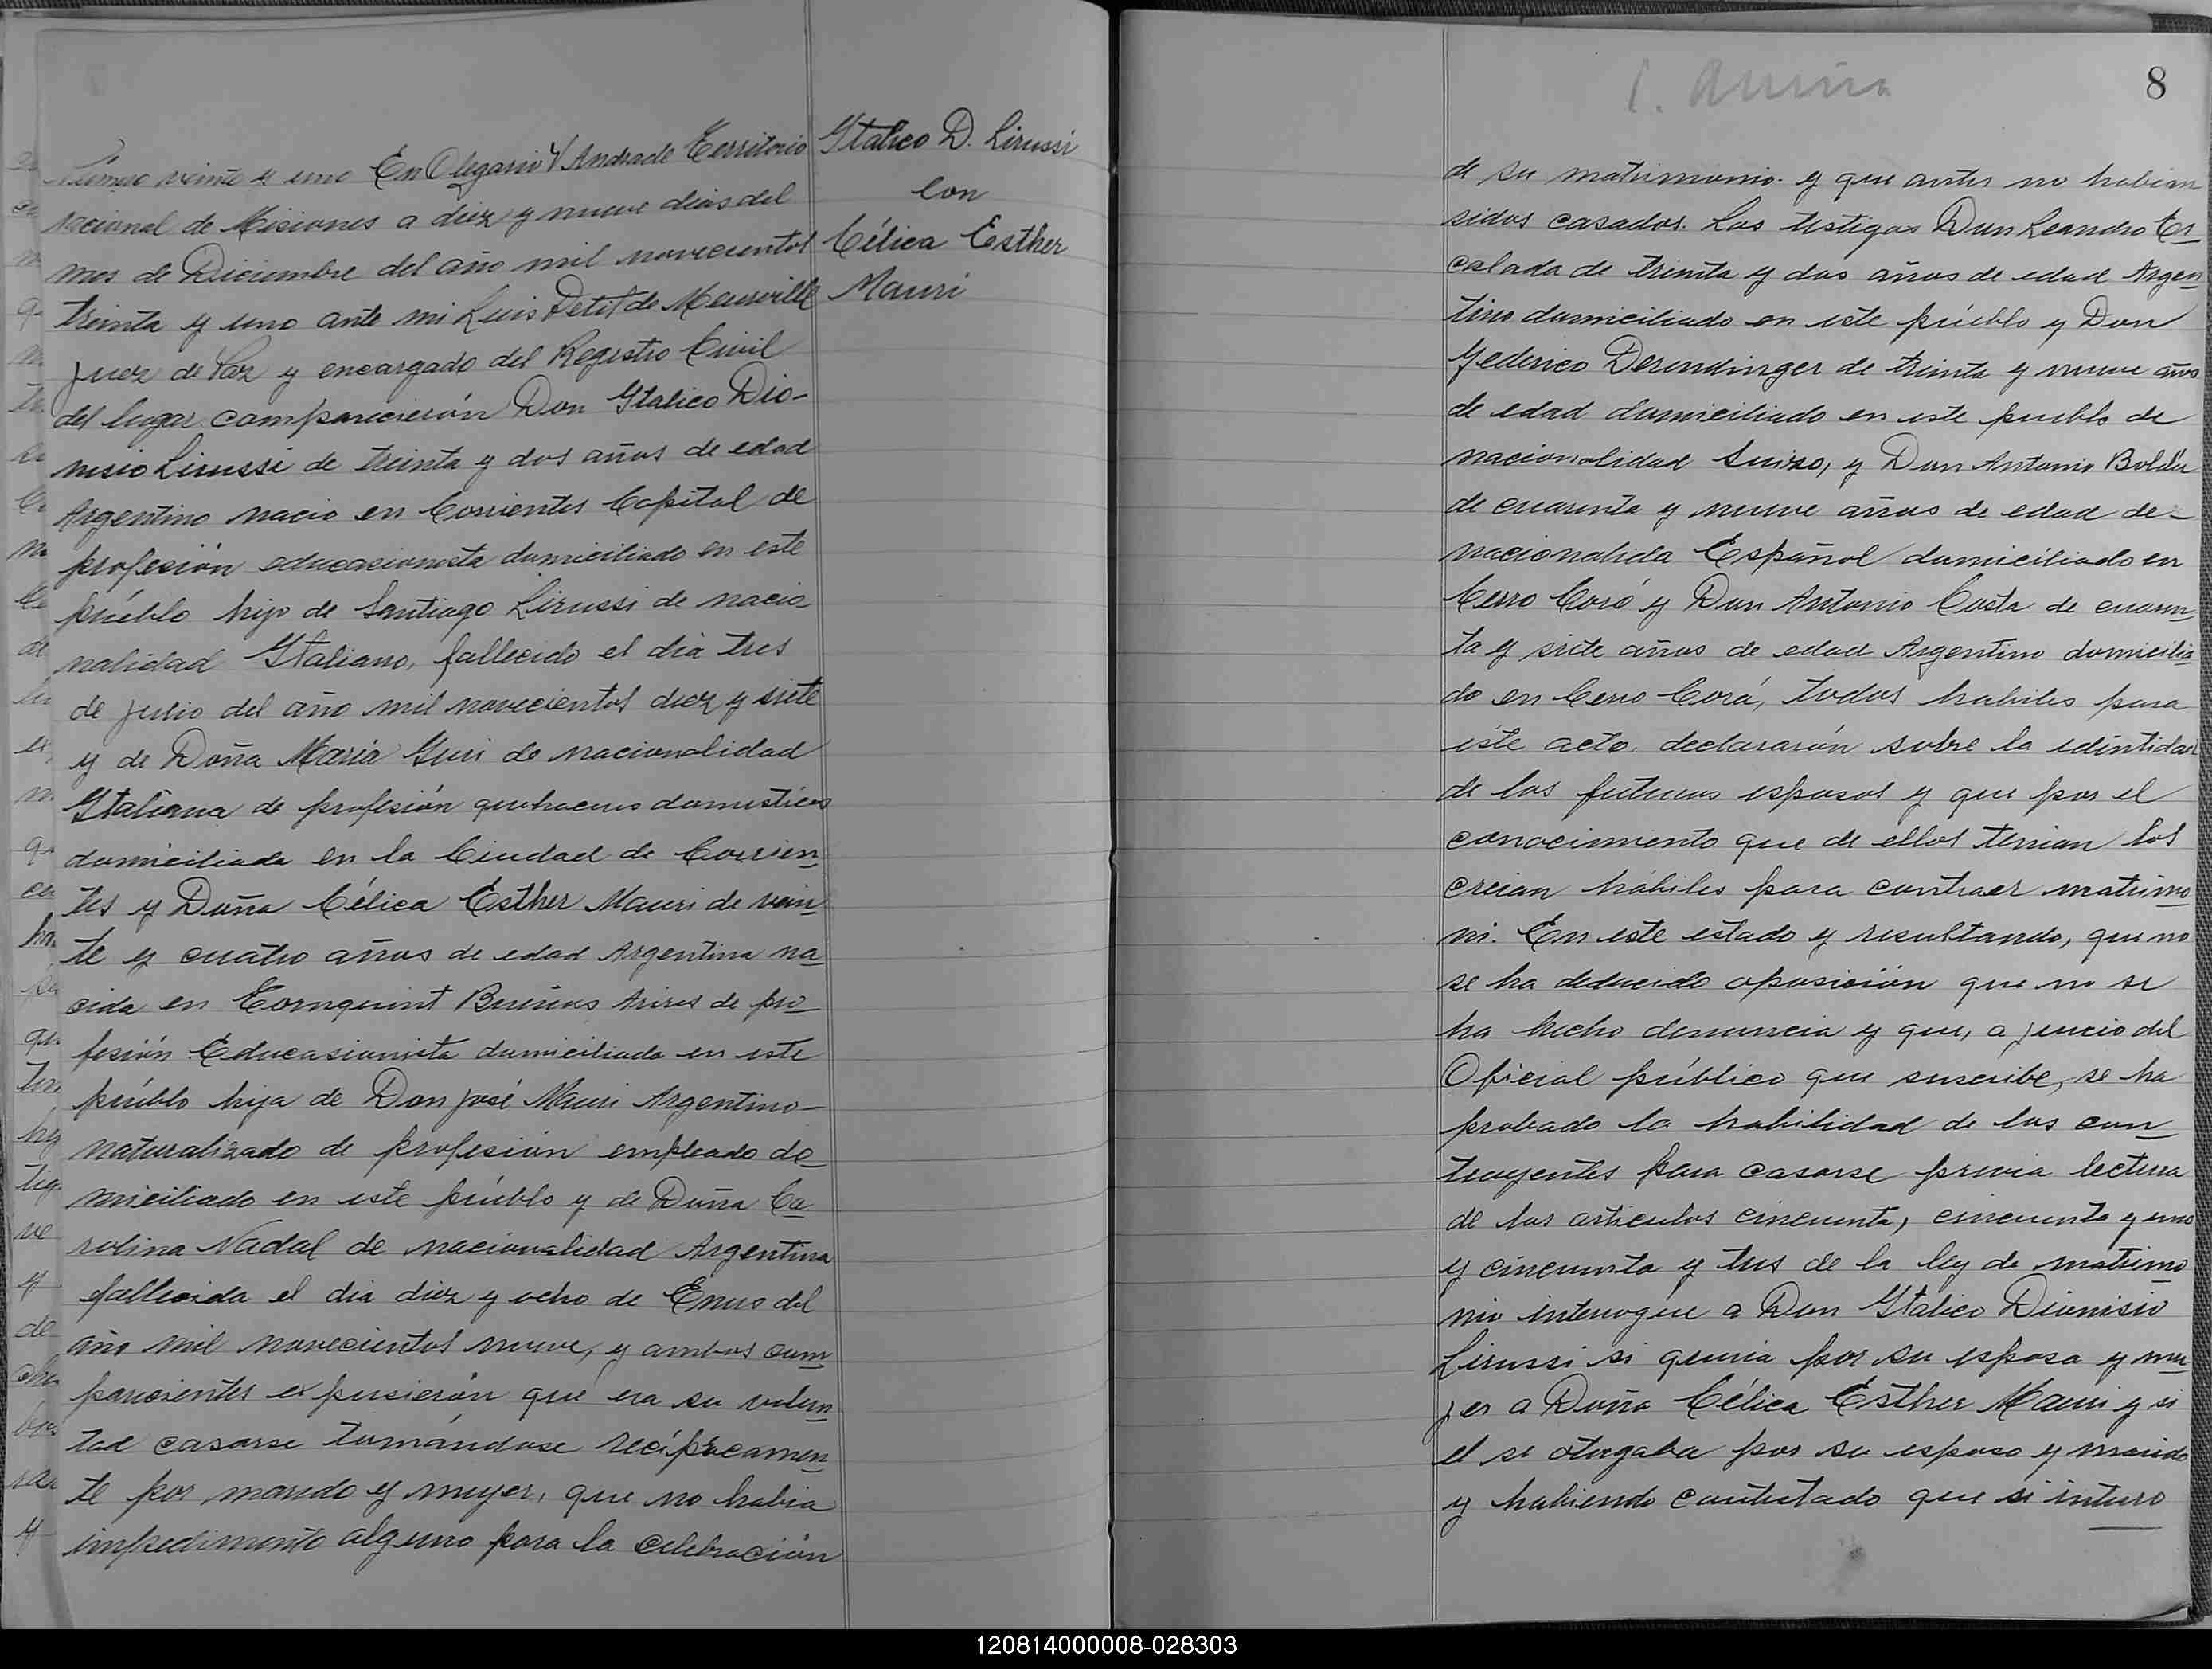 Número veinte y uno En Olegario V Andrade Territorio
nacional de Misiones a diez y nueve dias del
mes de Diciembre del año mil novecientos
treinta y uno ante mi Luis Petit de Meurville
Juez de Paz y encargado del Registro Civil
del lugar comparecierón Don Italico Dio-
nisio Lirussi de treinta y dos años de edad
Argentino nacio en Corrientes Capital de
profesión educasionista domiciliado en este
puéblo hijo de Santiago Lirussi de nacio
nalidad Italiano, fallecido el dia tres
de julio del año mil novecientos diez y siete
y de Doña Maria Guri de nacionalidad
Italiana de profesión quehaceres domesticos
domiciliada en la Ciudad de Corrien
tes y Doña Célica Esther Mauri de vein
te y cuatro años de edad Argentina na
cida en Tornquint Buenos Aires de pro
fesión Educasionista domiciliada en este
puéblo hija de Don José Mauri Argentino
naturalizado de profesión empleado do
miciliado en este puéblo y de Doña Ca
rolina Nadal de nacionalidad Argentina
fallecida el dia diez y ocho de Enero del
año mil novecientos nueve, y ambos com
parecientes expusierón que era su volun
tad casarse tomándose recíprocamen
te por marido y mujer, que no habia
impedimento alguno para la celebración
Italico D. Lirussi
Con
Célica Esther
Mauri
8
de su matrimonio y que antes no habian
sidos casados. Los testigos Don Leandro Es
calada de treinta y dos años de edad Argen
tino domiciliado en este puéblo y Don
Federico Derendinger de treinta y nueve años
de edad domiciliado en este pueblo de
nacionalidad Suizo, y Don Antonio Boldú
de cuarenta y nueve años de edad de
nacionalida Español domiciliado en
Cerro Corá y Don Antonio Costa de cuaren
ta y siete años de edad Argentino domicilia
do en Cerro Corá, todos habiles para
éste acto declararón sobre la edintidad
de los futuros esposos y que por el
conocimiento que de ellos tenian los
creian hábiles para contraer matrimo
ni. En este estado y resultando, que no
se ha deducido oposición que no se
ha hecho denuncia y que, a juicio del
Oficial público que suscribe, se ha
probado la habilidad de los con
trayentes para casarse previa lectura
de los articulos cincuenta, cincuenta y uno
y cincuenta y tres de la ley de matrimo
nio interrogúe a Don Italico Dionisio
Lirussi si queria por su esposa y mu
jer a Doña Célica Esther Mauri y si
el se otorgaba por su esposo y marido
y habiendo contestado que si interro
120814000008-028303